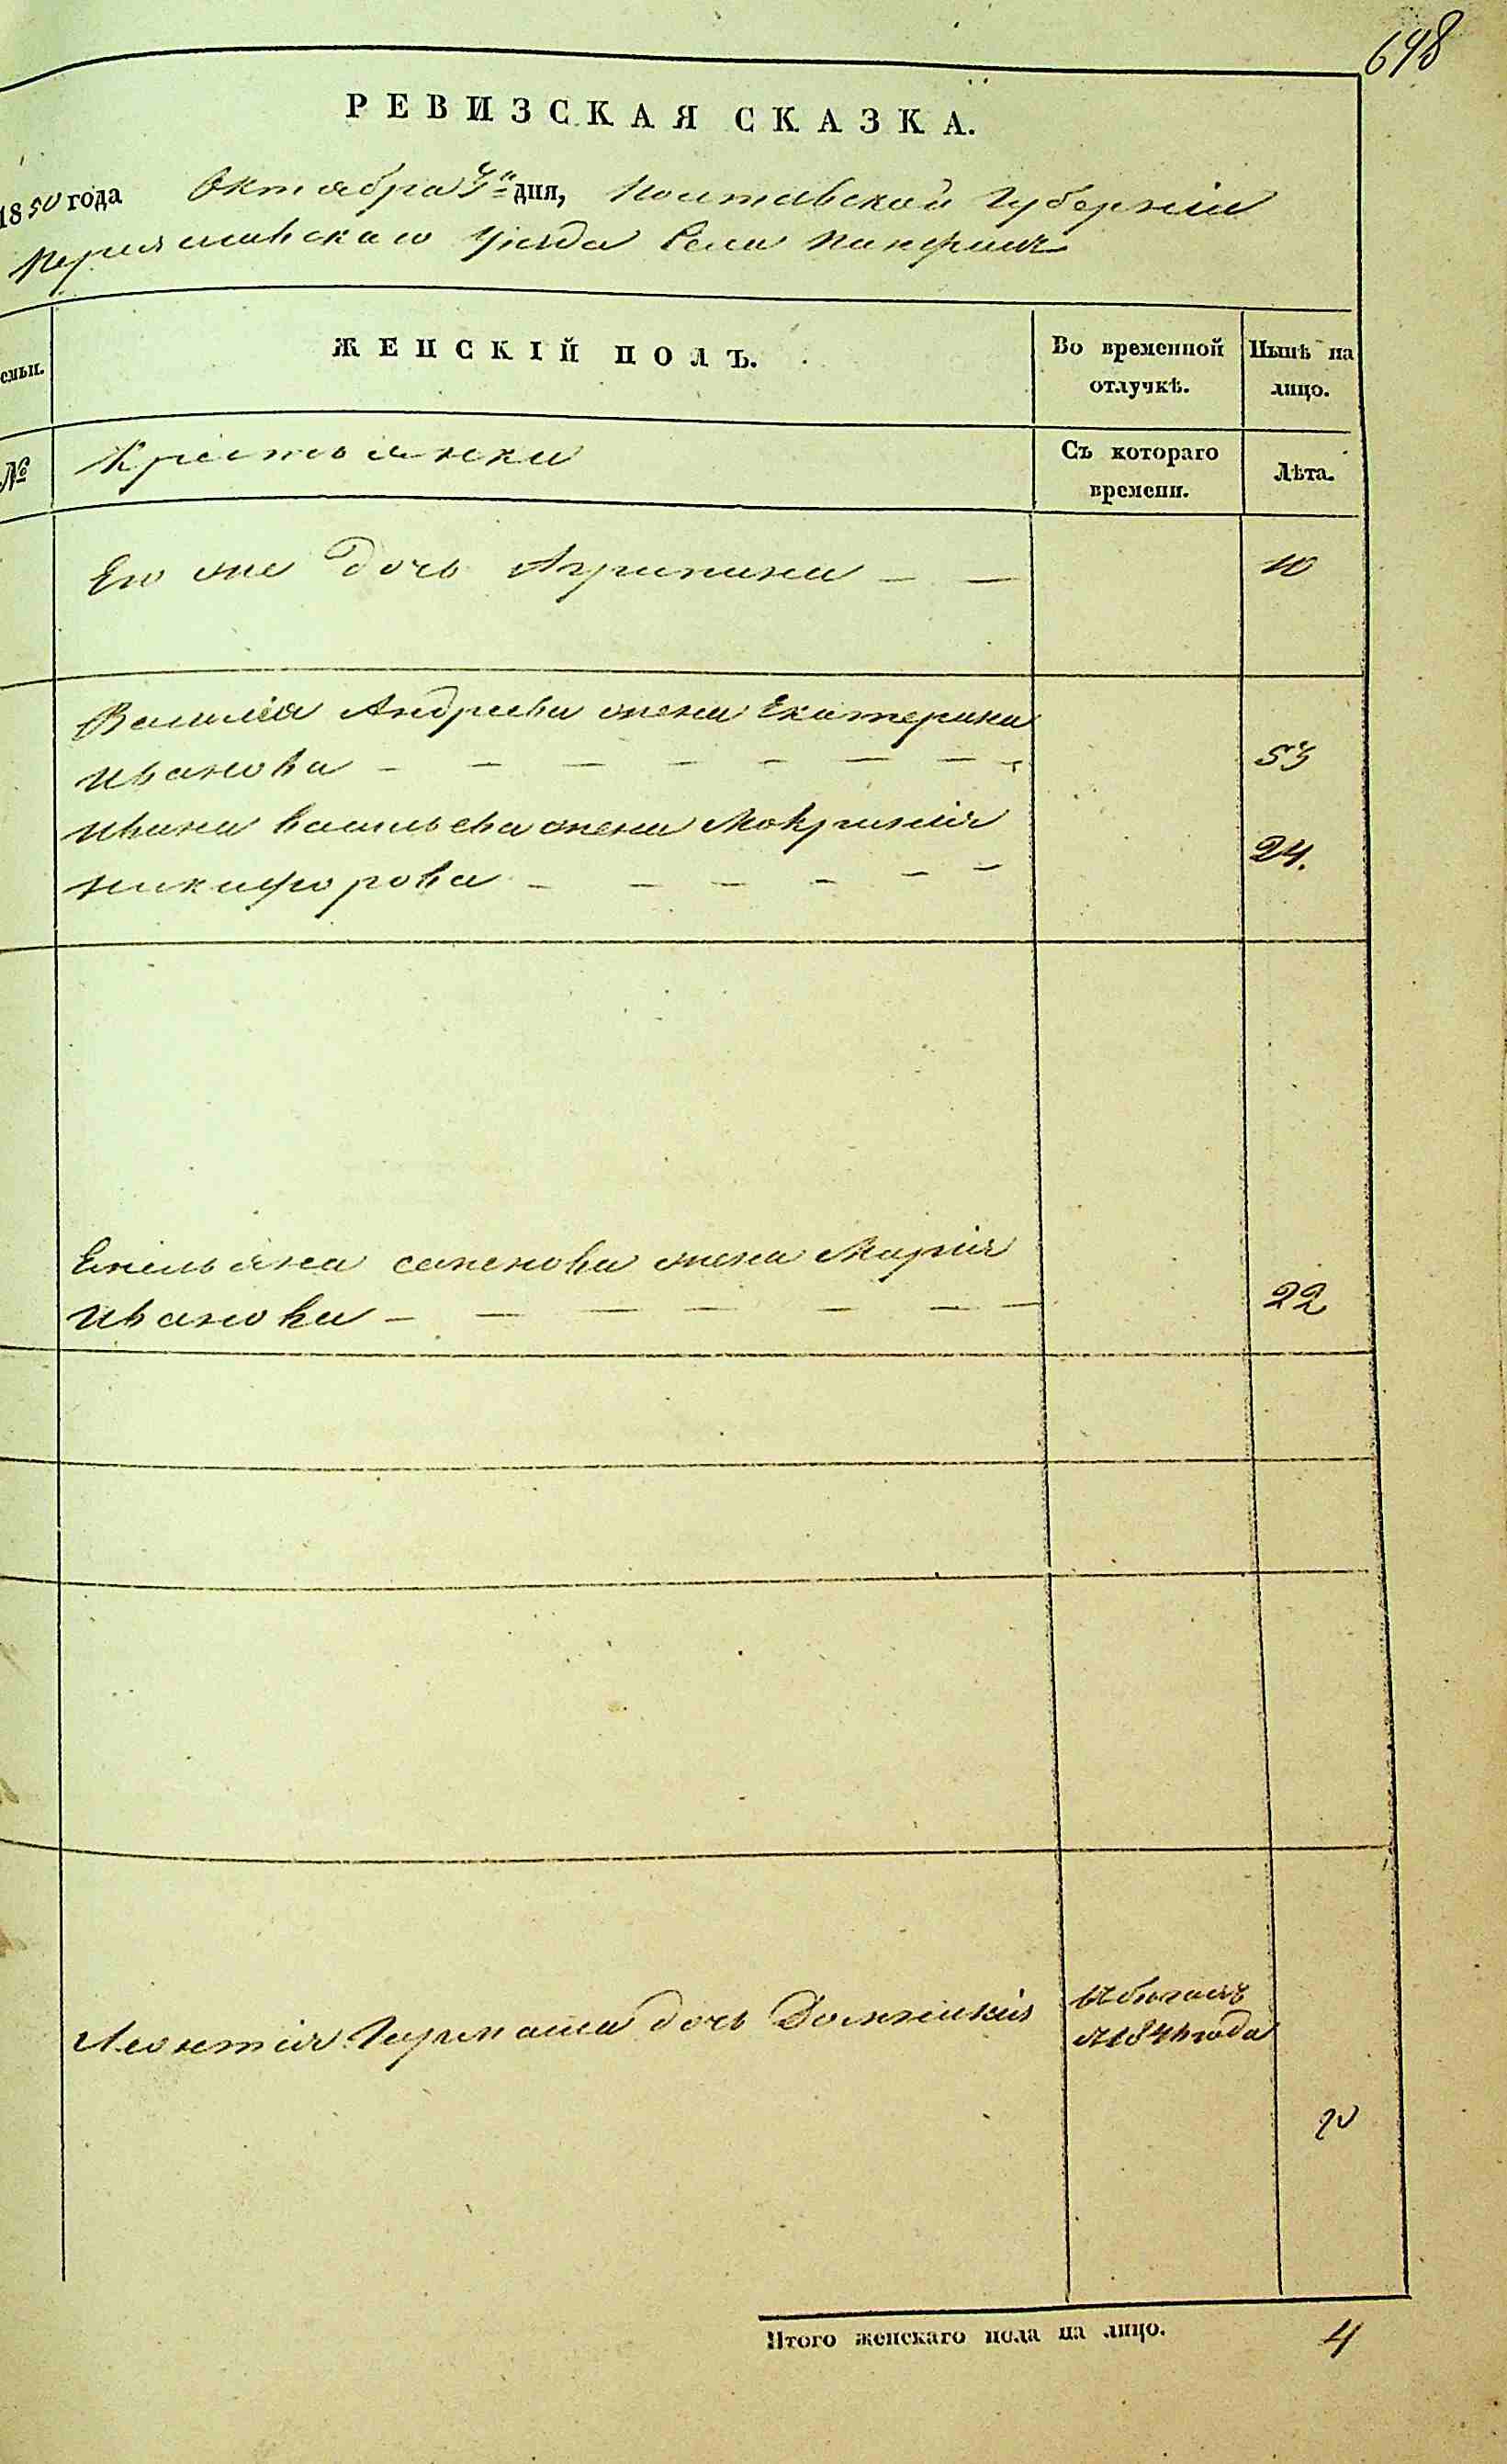 698
РЕВИЗСКАЯ СКАЗКА.
1850 года Октября дня, Полтавской Губерніи
Переяславскаго Уезда Села
ЖЕНСКІЙ ПОЛЪ.
Во временной отлучкѣ.
Нынѣ на лицо.
№
Крестьянки
Съ котораго времени.
Лѣта.
Его же дочь Агрипина — — 10
Василія Андреева жена Екатерина
Иванова — — — — — — — — 53
Ивана Васильева жена Мокрина
Никифорова — — — — — — 24.
Емельяна Семенова жена Марія
Иванова — — — — — — — 22
Леонтія дочь Домникія
въ бегахъ
1846 года
Итого женскаго пола на лицо. 4